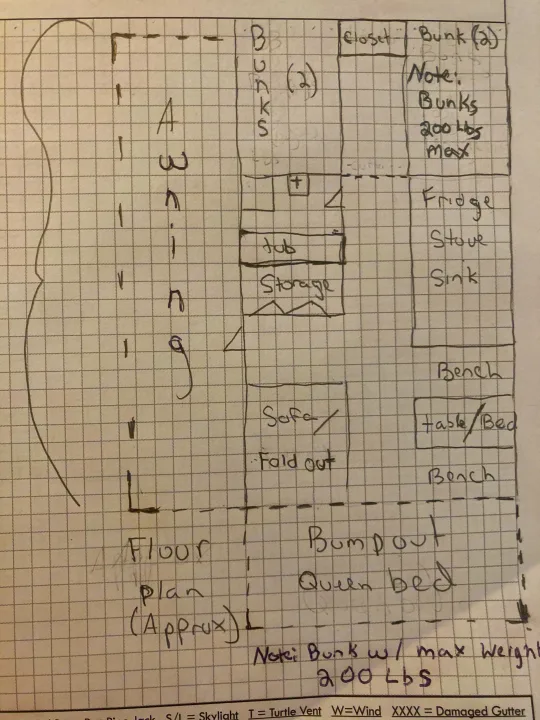 Bunks (2)
Closet
Bunk (2)
Note:
Bunks
200 Lbs
max
Awning
+
Fridge
Stove
Sink
tub
Storage
Bench
Sofa/
Fold out
table/Bed
Bench
Floor
plan
(Approx)
Bumpout
Queen bed
Note: Bunk w/ max weight
200 LbS
S/L = Skylight T = Turtle Vent W=Wind XXXX = Damaged Gutter